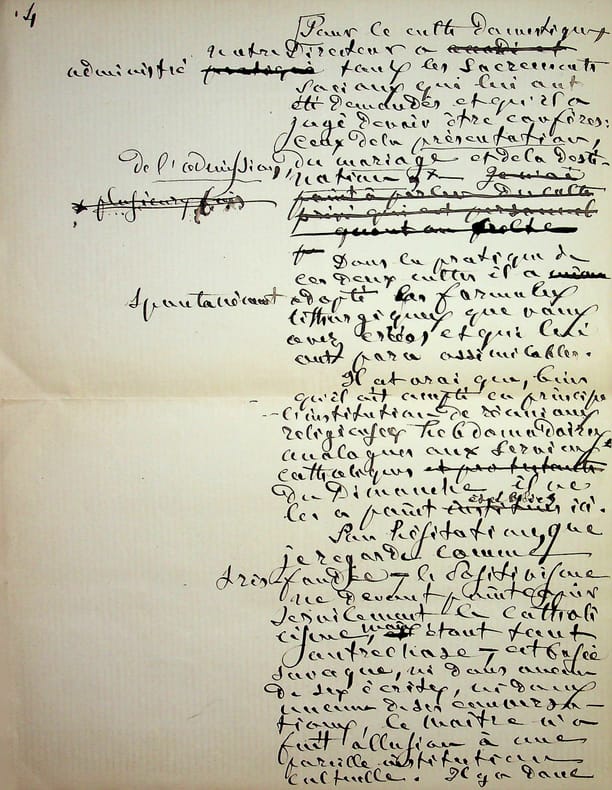 4
Pour le culte domestique,
notre Directeur a aussi et
administré pratiqué tous les Sacrements
sociaux qui lui ont
été demandés et qu'il a
jugé devoir être conférés:
ceux de la présentation,
de l'admission, du mariage et de la desti-
nation. Je n'ai
plusieurs fois point à parler du culte
privé qui est personnel
quant au
Dans la pratique de
ces deux cultes il a
spontanément adopté les formules
lithurgiques que vous
avez créées et qui lui
ont paru assimilables.
Il est vrai que, bien
qu'il ait accepté en principe
l'institution de réunions
religieuses hebdomadaires
analogues aux services
catholiques et protestants
du Dimanche, il ne
les a point établies ici.
Son hésitation, que
je regarde comme
très fondée – le Positivisme
ne devant point
servilement le catholi-
cisme, mais étant tout
autre chose – est basée
sur ce que, ni dans aucun
de ses écrits, ni dans
aucune de ses conversa-
tions, le maître n'a
fait allusion à une
pareille institution
culturelle. Il y a donc